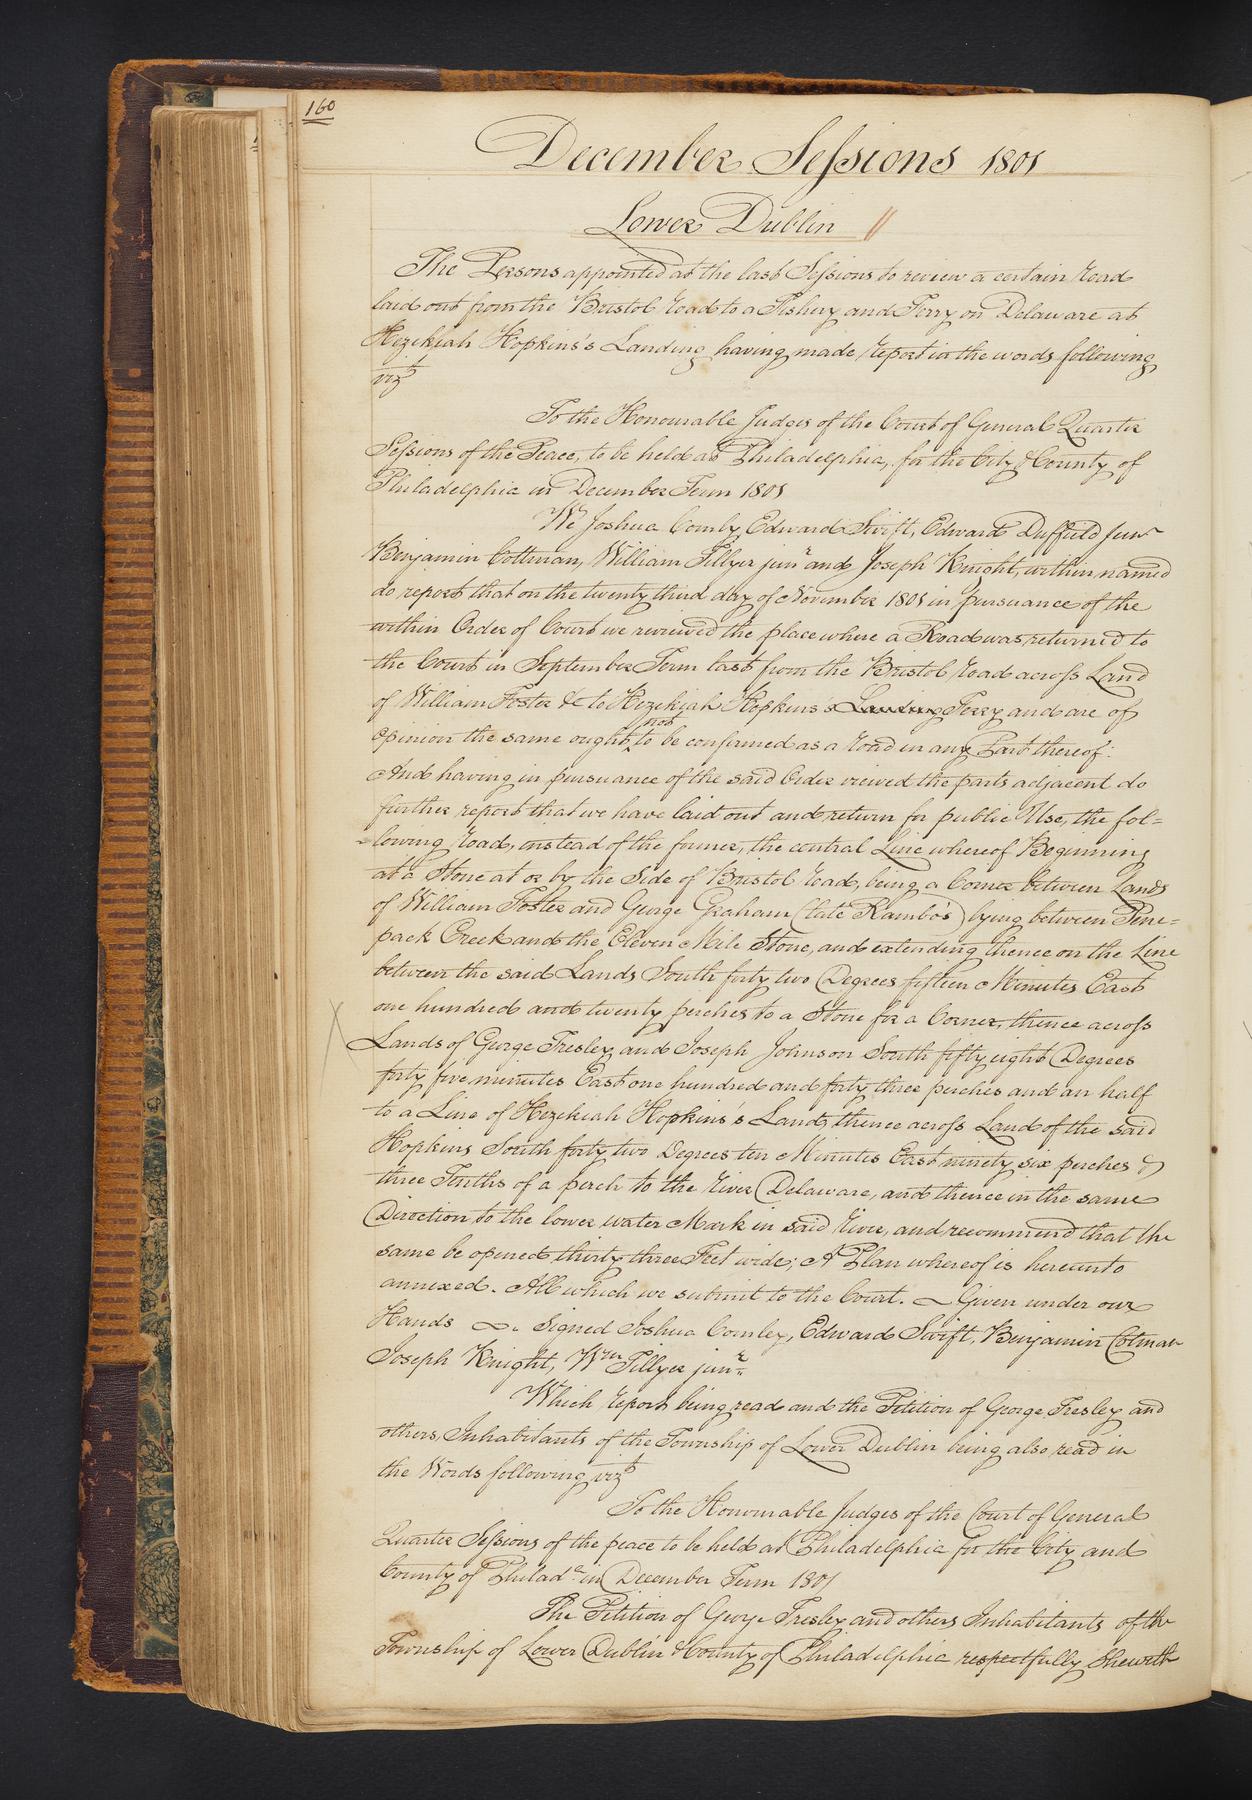 160
December Sessions 1801
Lower Dublin //
The Persons appointed at the last Sessions to review a certain road
laid out from the Bristol road to a Fishery and Ferry on Delaware at
Hezekiah Hopkins's Landing having made report in the words following
vizt
To the Honourable Judges of the Court of General Quarter
Sessions of the Peace, to be held at Philadelphia, for the City & County of
Philadelphia in December Term 1801
We Joshua Comly, Edward Swift, Edward Duffield Junr
Benjamin Cottman, William Tillyer junr and Joseph Knight, within named
do report that on the twenty third day of November 1801 in pursuance of the
within Order of Court we reviewed the place where a Road was returned to
the Court in September Term last from the Bristol road across Land
of William Foster &c to Hezekiah Hopkins's Landing Ferry and are of
opinion the same ought not to be confirmed as a road in any Part thereof:
And having in pursuance of the said Order viewed the parts adjacent do
further report that we have laid out and return for public Use, the fol=
=lowing road, instead of the former, the central Line whereof Beginning
at a Stone at or by the Side of Bristol road, being a Corner between Lands
of William Foster and George Graham (late Rambo's) lying between Pene=
pack Creek and the Eleven Mile Stone, and extending thence on the Line
between the said Lands South forty two Degrees fifteen Minutes East
one hundred and twenty perches to a Stone for a Corner, thence across
Lands of George Fresley and Joseph Johnson South fifty eight Degrees
forty five minutes East one hundred and forty three perches and an half
to a Line of Hezekiah Hopkins's Land, thence across Land of the said
Hopkins South forty two Degrees ten Minutes East ninety six perches &
three Tenths of a perch to the river Delaware, and thence in the same
Direction to the lower water Mark in said river, and recommend that the
same be opened thirty three Feet wide; A Plan whereof is hereunto
annexed. All which we submit to the Court. Given under our
Hands &c. Signed Joshua Comley, Edward Swift, Benjamin Cotman
Joseph Knight, Wm Tillyer junr
Which report being read and the Petition of George Fresley and
others, Inhabitants of the Township of Lower Dublin being also read in
the Words following vizt
To the Honourable Judges of the Court of General
Quarter Sessions of the peace to be held at Philadelphia for the City and
County of Philada in December Term 1801
The Petition of George Fresley and others Inhabitants of the
Township of Lower Dublin & County of Philadelphia respectfully Sheweth